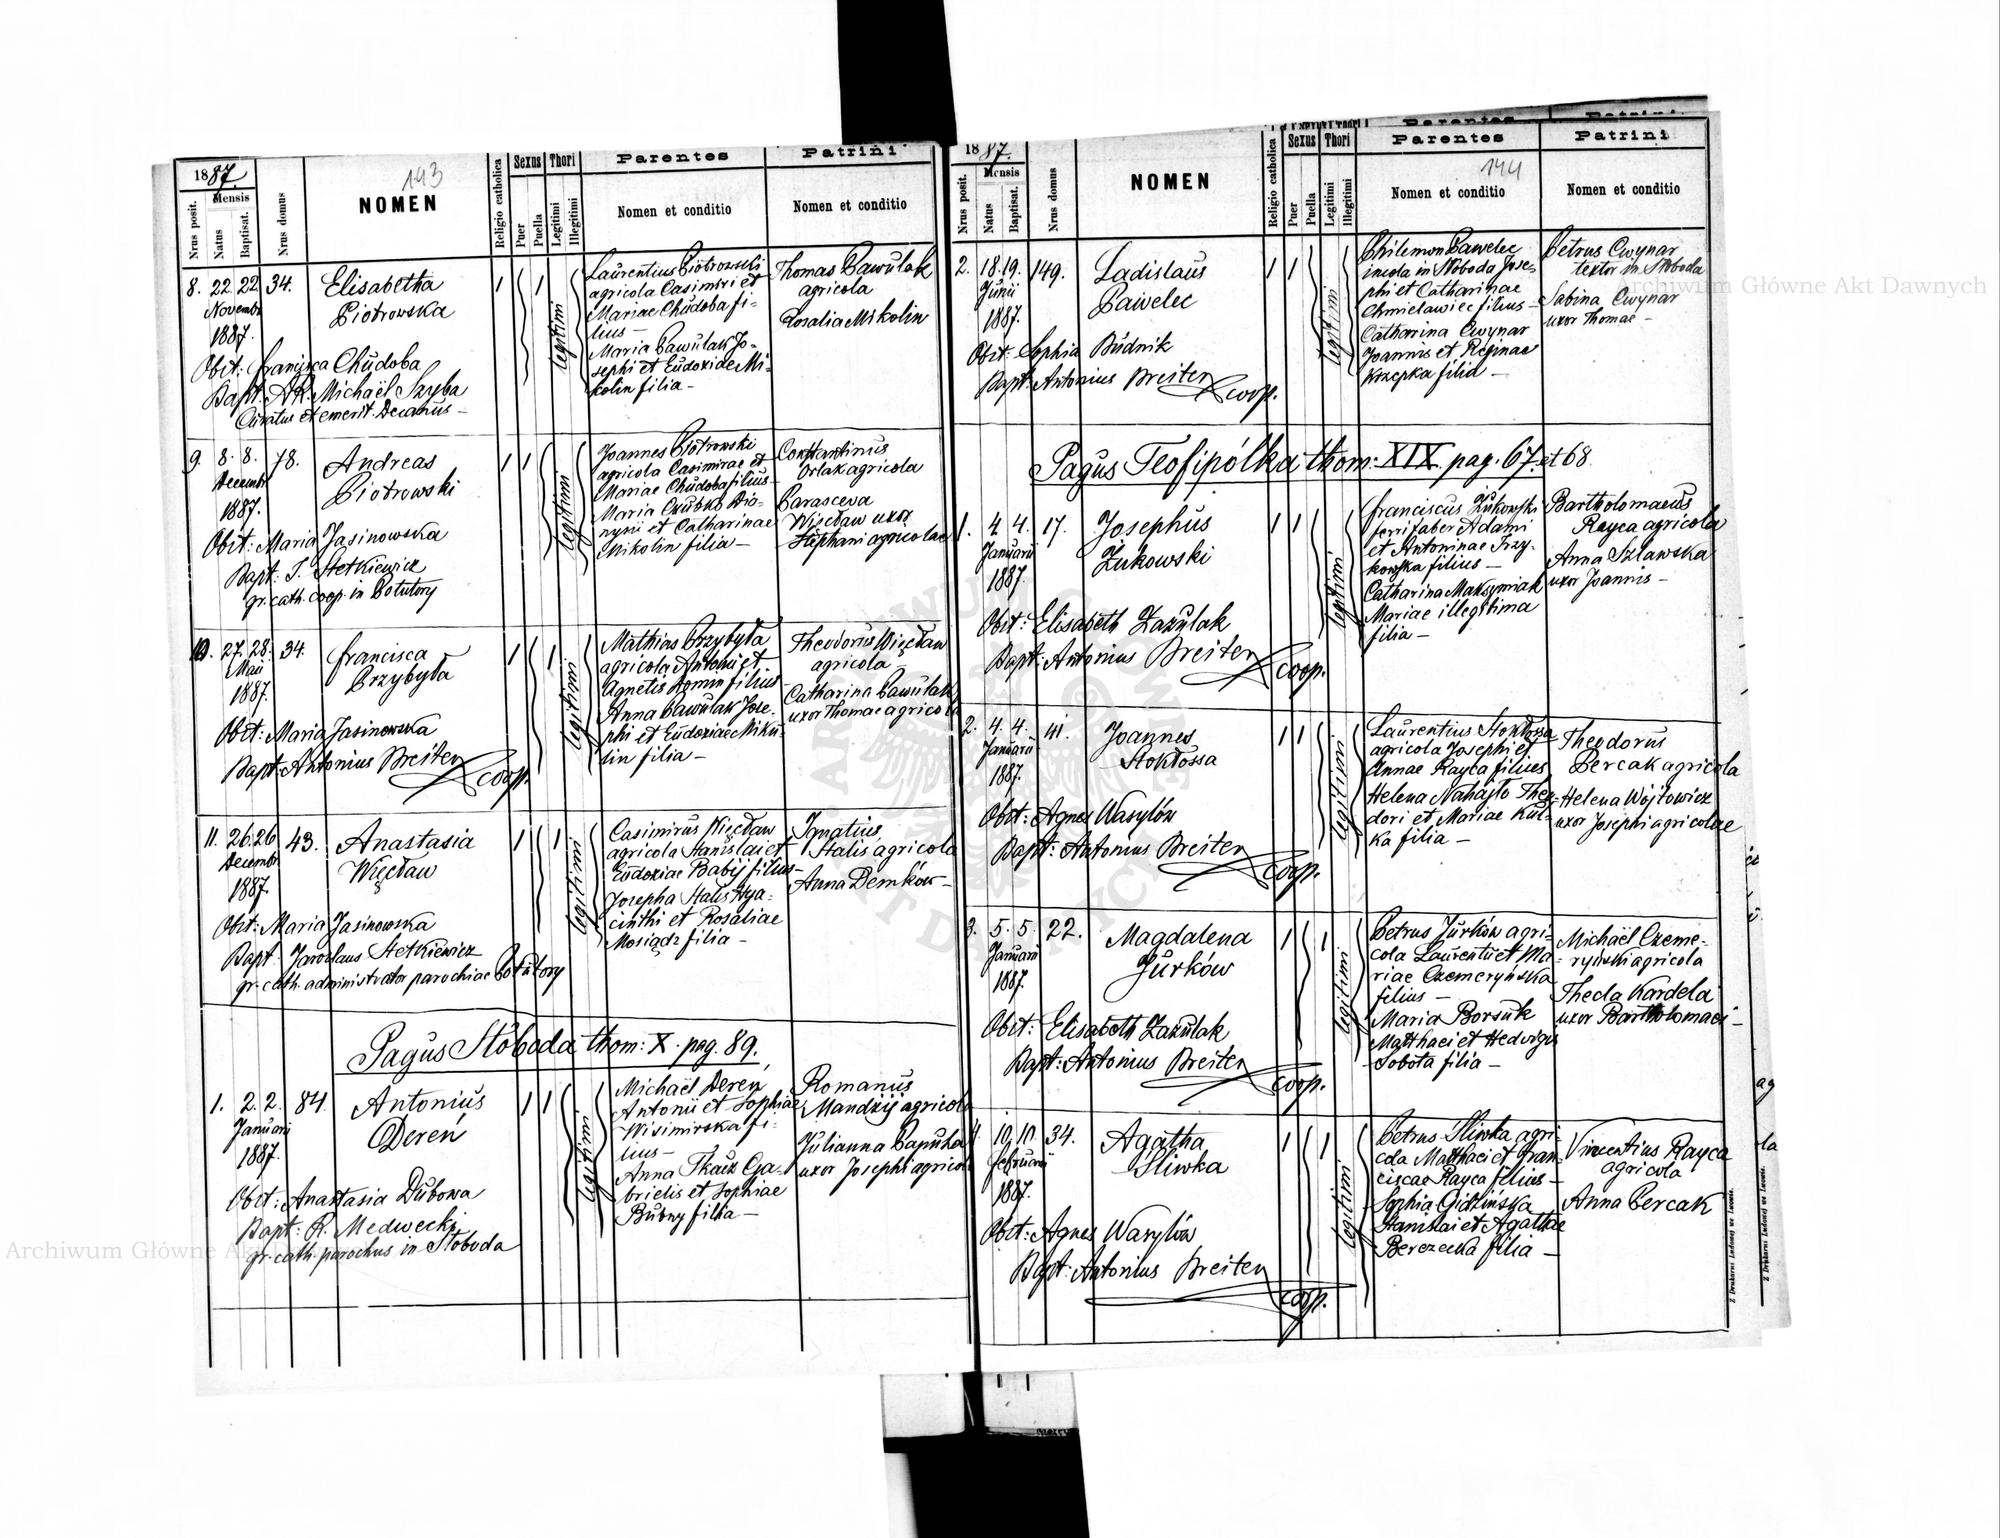 1887.
Mensis
Nrus posit.
Natus
Baptisat.
Nrus domus
143
NOMEN
Religio catholica
Sexus
Puer
Puella
Thori
Legitimi
Illegitimi
Parentes
Nomen et conditio
Patrini
Nomen et conditio
8. 22. 22. 34.
Novembr
1887.
Elisabetha
Piotrowska
1 1
legitimi
Obst: Francisca Chudoba
Bapt: AR. Michaël Szyba
Curatus et emerit. Decanus –
Laurentius Piotrowski
agricola Casimiri et
Mariae Chudoba fi-
lius –
Maria Pawulak Jo-
sephi et Eudoxiae Mi-
kolin filia –
Thomas Pawulak
agricola
Rosalia Mikolin
9. 8. 8. 78.
Decembr
1887.
Andreas
Piotrowski
1 1
legitimi
Obst: Maria Jasinowska
Bapt: J. Stetkiewicz
gr. cath. coop. in Potutory
Joannes Piotrowski
agricola Casimirae et
Mariae Chudoba filius –
Maria Czubko Dio-
nysii et Catharinae
Mikolin filia –
Constantinus
Orlak agricola
Parasceva
Więcław uxor
Stephani agricolae
10. 27. 28. 34.
Maii
1887.
Francisca
Przybyła
1 1
legitimi
Obst: Maria Jasinowska
Bapt: Antonius Breiter
coop.
Mathias Przybyła
agricola Antonii et
Agnetis Domin filius
Anna Pawulak Jose-
phi et Eudoxiae Miku-
lin filia –
Theodorus Więcław
agricola –
Catharina Pawulak
uxor Thomae agricola
11. 26. 26. 43.
Decembr
1887.
Anastasia
Więcław
1 1
legitimi
Obst: Maria Jasinowska
Bapt: Jaroslaus Stetkiewicz
gr. cath. administrator parochiae Potutory
Casimirus Więcław
agricola Stanislai et
Eudoxiae Babij filius –
Josepha Stalis Hya-
cinthi et Rosaliae
Mosiądz filia –
Ignatius
Stalis agricola
Anna Demków –
Pagus Słoboda thom: X. pag. 89.
1. 2. 2. 84.
Januarii
1887.
Antonius
Deren
1 1
legitimi
Obst: Anastasia Dubowa
Bapt: R. Medwecki
gr. cath. parochus in Słoboda
Michaël Deren
Antonii et Sophiae
Wisimirska fi-
lius –
Anna Tkacz Ga-
brielis et Sophiae
Bubny filia –
Romanus
Mandzij agricola
Julianna Papuha
uxor Josephi agricola
1887.
Mensis
Nrus posit.
Natus
Baptisat.
Nrus domus
NOMEN
Religio catholica
Sexus
Puer
Puella
Thori
Legitimi
Illegitimi
Parentes
144
Nomen et conditio
Patrini
Nomen et conditio
2. 18. 19. 149.
Junii
1887.
Ladislaus
Pawelec
1 1
legitimi
Obst: Sophia Budnik
Bapt: Antonius Breiter
coop.
Philemon Pawelec
incola in Słoboda Jose-
phi et Catharinae
Chmielawiec filius –
Catharina Cwynar
Joannis et Reginae
Krzepka filia –
Petrus Cwynar
textor in Słoboda
Sabina Cwynar
uxor Thomae –
Pagus Teofipólka thom: XIX. pag. 67. et 68.
1. 4. 4. 17.
Januarii
1887.
Josephus
Żukowski
1 1
legitimi
Obst: Elisabeth Zazulak
Bapt: Antonius Breiter
coop.
Franciscus Żukowski
ferrifaber Adami
et Antoninae Trzy-
kowska filius –
Catharina Maksymiak
Mariae illegitima
filia –
Bartholomaeus
Rayca agricola
Anna Szlawska
uxor Joannis –
2. 4. 4. 41.
Januarii
1887.
Joannes
Stokłossa
1 1
legitimi
Obst: Agnes Wasylów
Bapt: Antonius Breiter
coop.
Laurentius Stokłossa
agricola Josephi et
Annae Rayca filius
Helena Nahajło Theo-
dori et Mariae Kul-
ka filia –
Theodorus
Bercak agricola
Helena Wojtowicz
uxor Josephi agricolae
3. 5. 5. 22.
Januarii
1887.
Magdalena
Jurków
1 1
legitimi
Obst: Elisabeth Zazulak
Bapt: Antonius Breiter
coop.
Petrus Jurków agri-
cola Laurentii et Ma-
riae Czemeryńska
filius –
Maria Borsuk
Matthaei et Hedvigis
Sobota filia –
Michaël Czeme-
ryński agricola
Thecla Kardela
uxor Bartholomaei –
4. 10. 10. 34.
Februarii
1887.
Agatha
Sliwka
1 1
legitimi
Obst: Agnes Wasylów
Bapt: Antonius Breiter
coop.
Petrus Sliwka agri-
cola Matthaei et Fran-
ciscae Rayca filius –
Sophia Gidzińska
Stanislai et Agathae
Berezecka filia –
Vincentius Rayca
agricola
Anna Bercak
Z Drukarni Ludowej we Lwowie.
Z Drukarni Ludowej we Lwowie.
Archiwum Główne Akt Dawnych